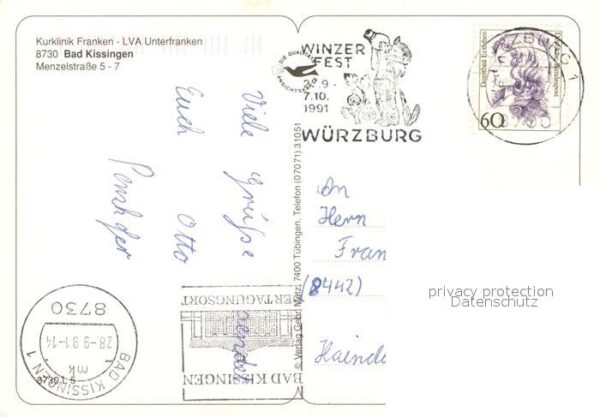 Kurklinik Franken - LVA Unterfranken
8730 Bad Kissingen
Menzelstraße 5 - 7
WINZER
FEST
7.10.
1991
WÜRZBURG
WÜRZBURG 1
8700
Deutsche Bundespost
60
Viele Grüße
sendet
Euch Otto
© Verlag Gebr. Metz, 7400 Tübingen, Telefon (07071) 31051
An
Herrn
Fran
(8442)
privacy protection
Datenschutz
Haindl
TAGUNGSORT
BAD KISSINGEN
8730
28-9.91-14
mk
BAD KISSINGEN 1